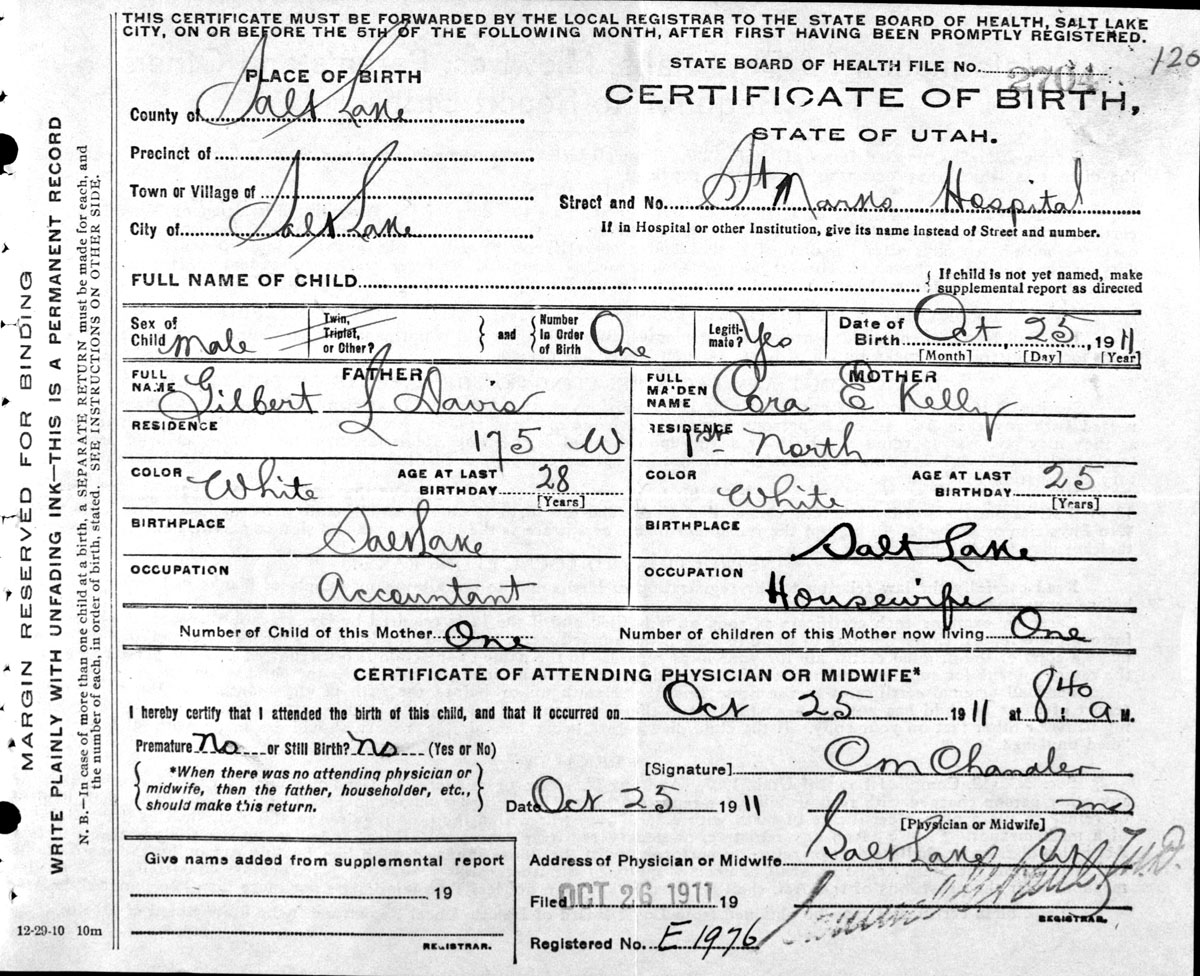 THIS CERTIFICATE MUST BE FORWARDED BY THE LOCAL REGISTRAR TO THE STATE BOARD OF HEALTH, SALT LAKE
CITY, ON OR BEFORE THE 5TH OF THE FOLLOWING MONTH, AFTER FIRST HAVING BEEN PROMPTLY REGISTERED.
PLACE OF BIRTH
STATE BOARD OF HEALTH FILE No. 2704
120
CERTIFICATE OF BIRTH,
STATE OF UTAH.
County of Salt Lake
Precinct of
Town or Village of
City of Salt Lake
Street and No. St Marks Hospital
If in Hospital or other Institution, give its name instead of Street and number.
FULL NAME OF CHILD
{ If child is not yet named, make
supplemental report as directed
Sex of
Child male
Twin,
Triplet,
or Other?
} and {
Number
in Order
of Birth One
Legiti-
mate? Yes
Date of
Birth Oct 25, 1911
[Month] [Day] [Year]
FATHER
FULL
NAME Gilbert L Davis
MOTHER
FULL
MAIDEN
NAME Cora E Kelly
RESIDENCE 175 W
RESIDENCE 1st North
COLOR White
AGE AT LAST
BIRTHDAY 28
[Years]
COLOR White
AGE AT LAST
BIRTHDAY 25
[Years]
BIRTHPLACE Salt Lake
BIRTHPLACE Salt Lake
OCCUPATION Accountant
OCCUPATION Housewife
Number of Child of this Mother One
Number of children of this Mother now living One
CERTIFICATE OF ATTENDING PHYSICIAN OR MIDWIFE*
I hereby certify that I attended the birth of this child, and that it occurred on Oct 25 1911 at 8:40 a M.
Premature No or Still Birth? No (Yes or No)
{ *When there was no attending physician or
midwife, then the father, householder, etc.,
should make this return. }
[Signature] C M Chandler
Date Oct 25 1911
MD
[Physician or Midwife]
Give name added from supplemental report
19
REGISTRAR.
Address of Physician or Midwife Salt Lake
Filed OCT 26 1911 19
M.D.
REGISTRAR.
Registered No. E 1976
12-29-10 10m
MARGIN RESERVED FOR BINDING
WRITE PLAINLY WITH UNFADING INK—THIS IS A PERMANENT RECORD
N. B.—In case of more than one child at a birth, a SEPARATE RETURN must be made for each, and
the number of each, in order of birth, stated. SEE INSTRUCTIONS ON OTHER SIDE.